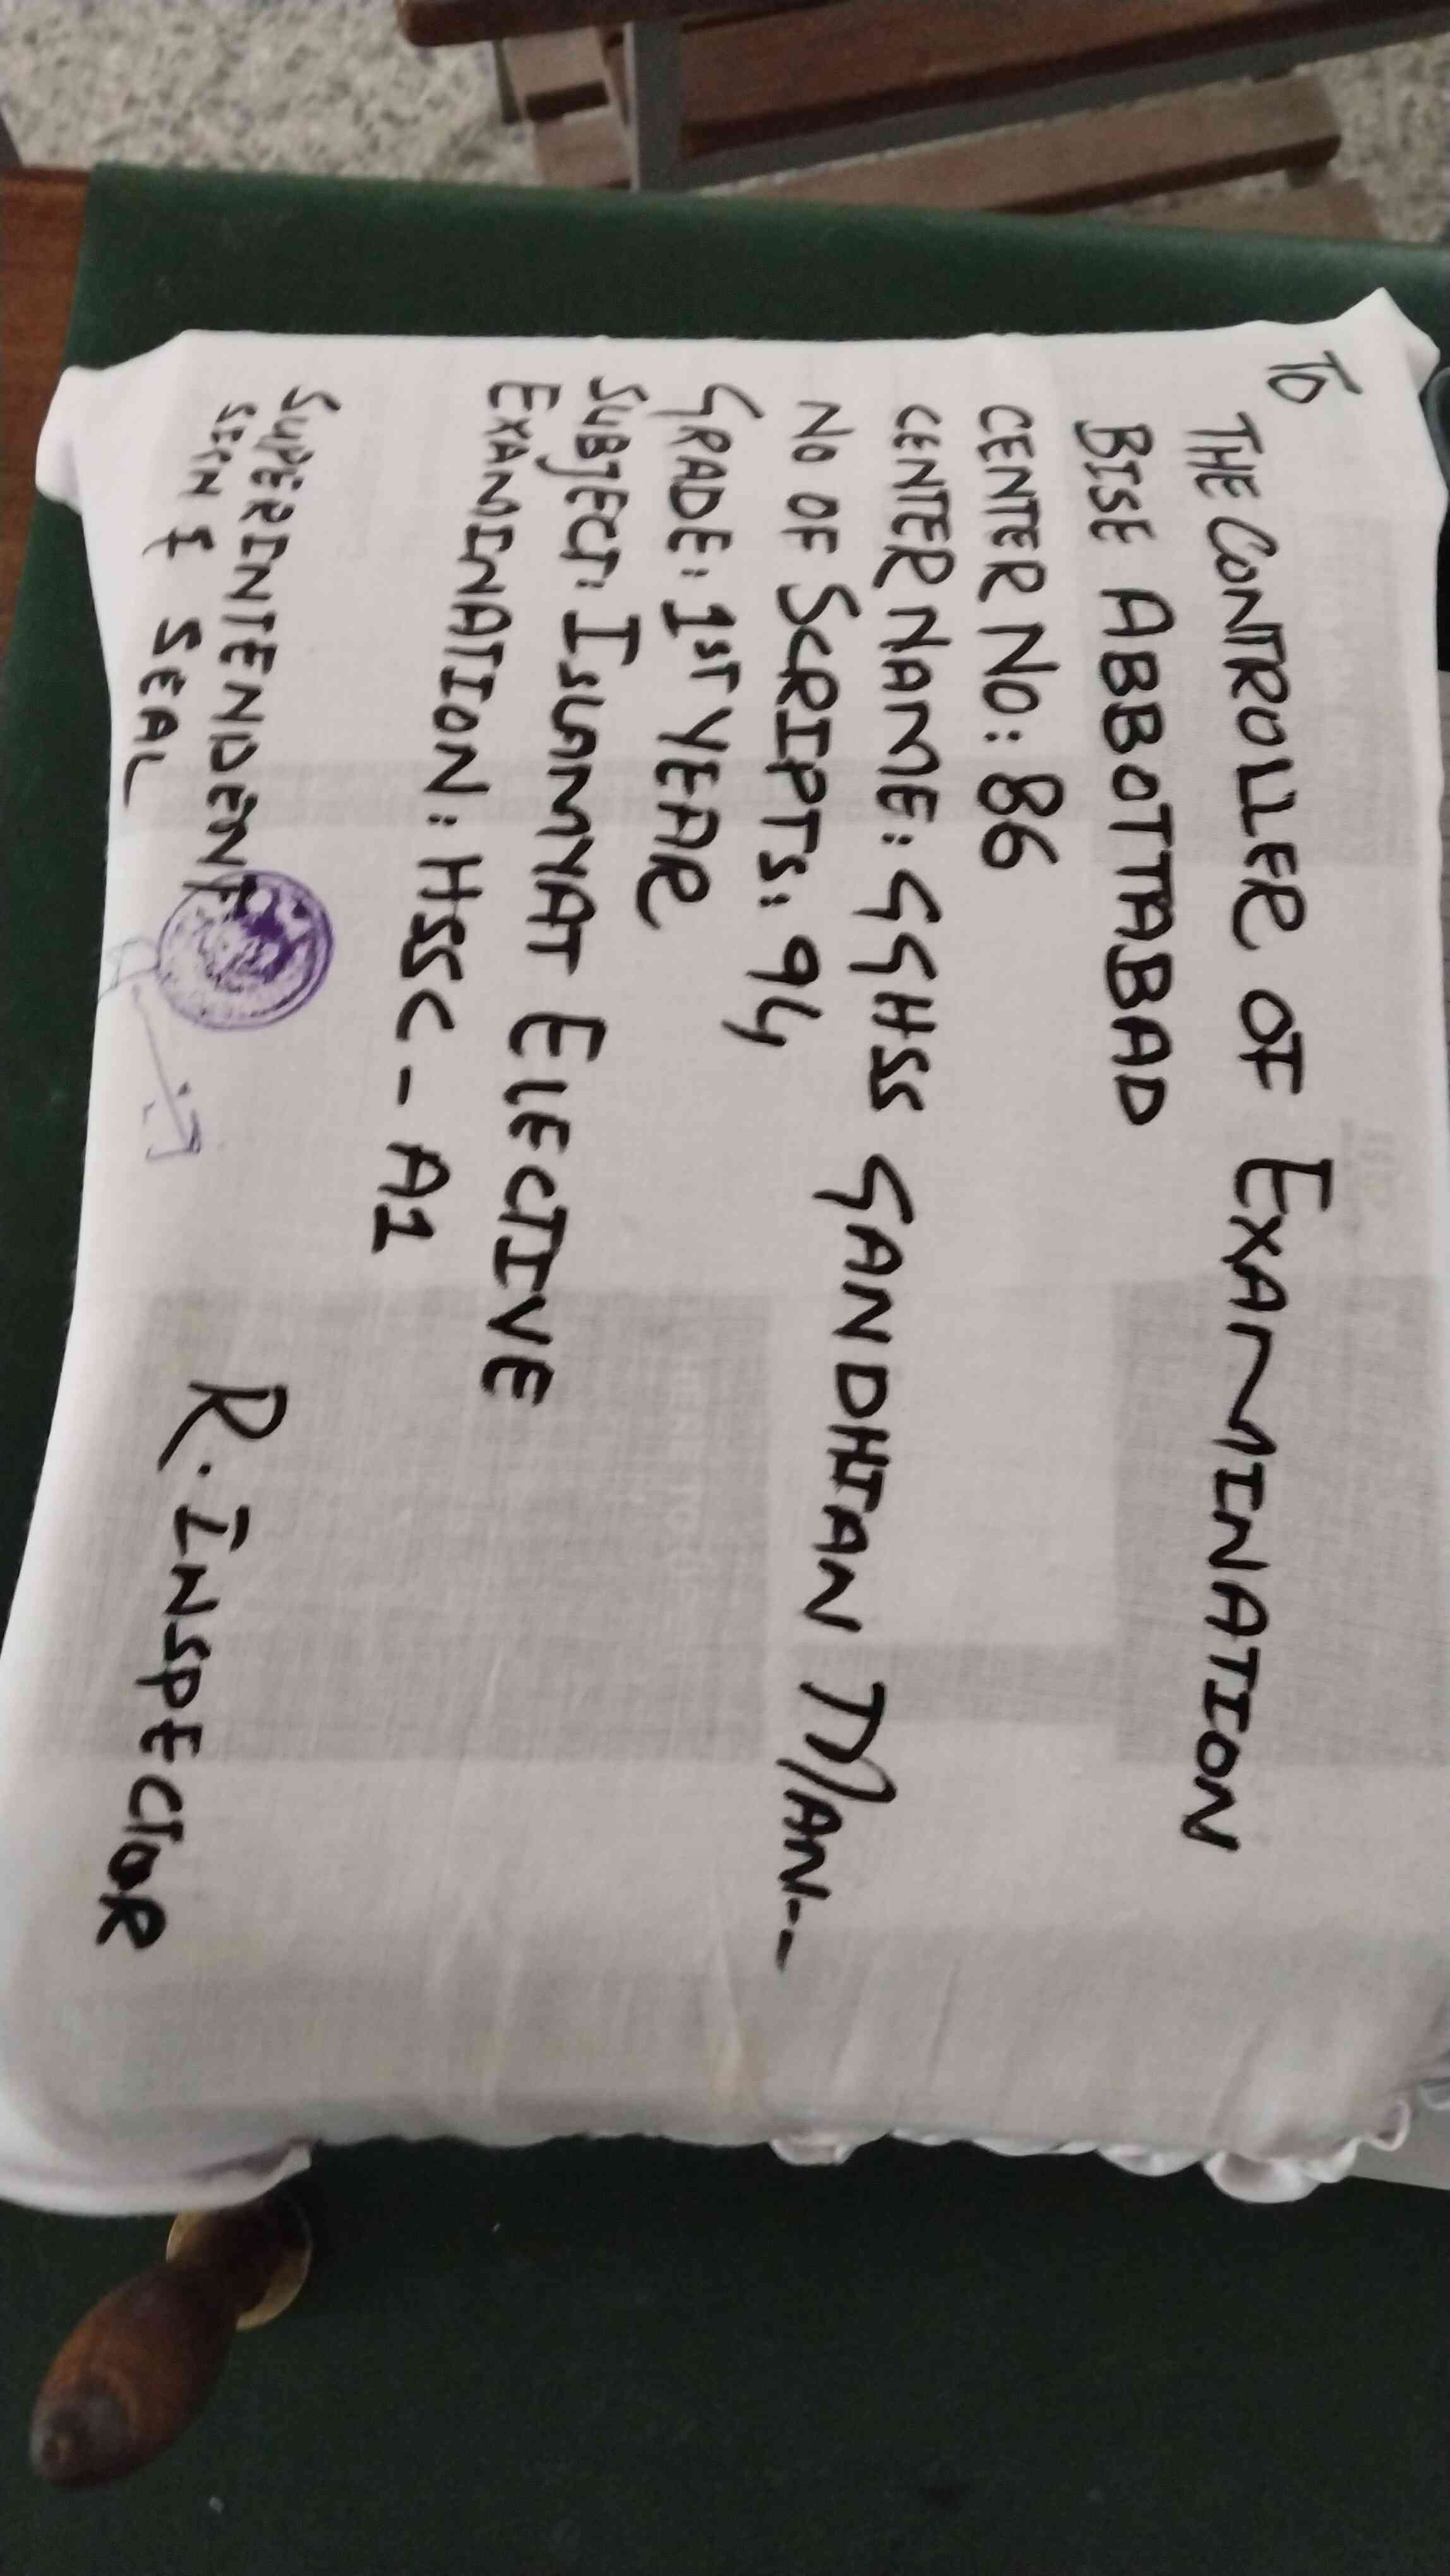 TO
THE CONTROLLER OF EXAMINATION
BISE ABBOTTABAD
CENTER NO: 86
CENTER NAME: GGHSS GANDHIAN MAN--
NO OF SCRIPTS: 94
GRADE: 1ST YEAR
SUBJECT: ISLAMYAT ELECTIVE
EXAMINATION: HSSC - A1
SUPERINTENDENT
SEIN & SEAL
R. INSPECTOR